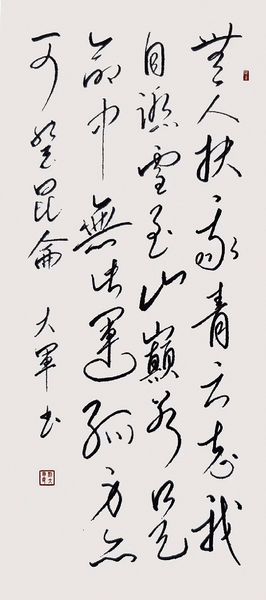 無人扶我青云志我
自踏雪至山巔若是
命中無此運孤身亦
可登昆侖 大軍书